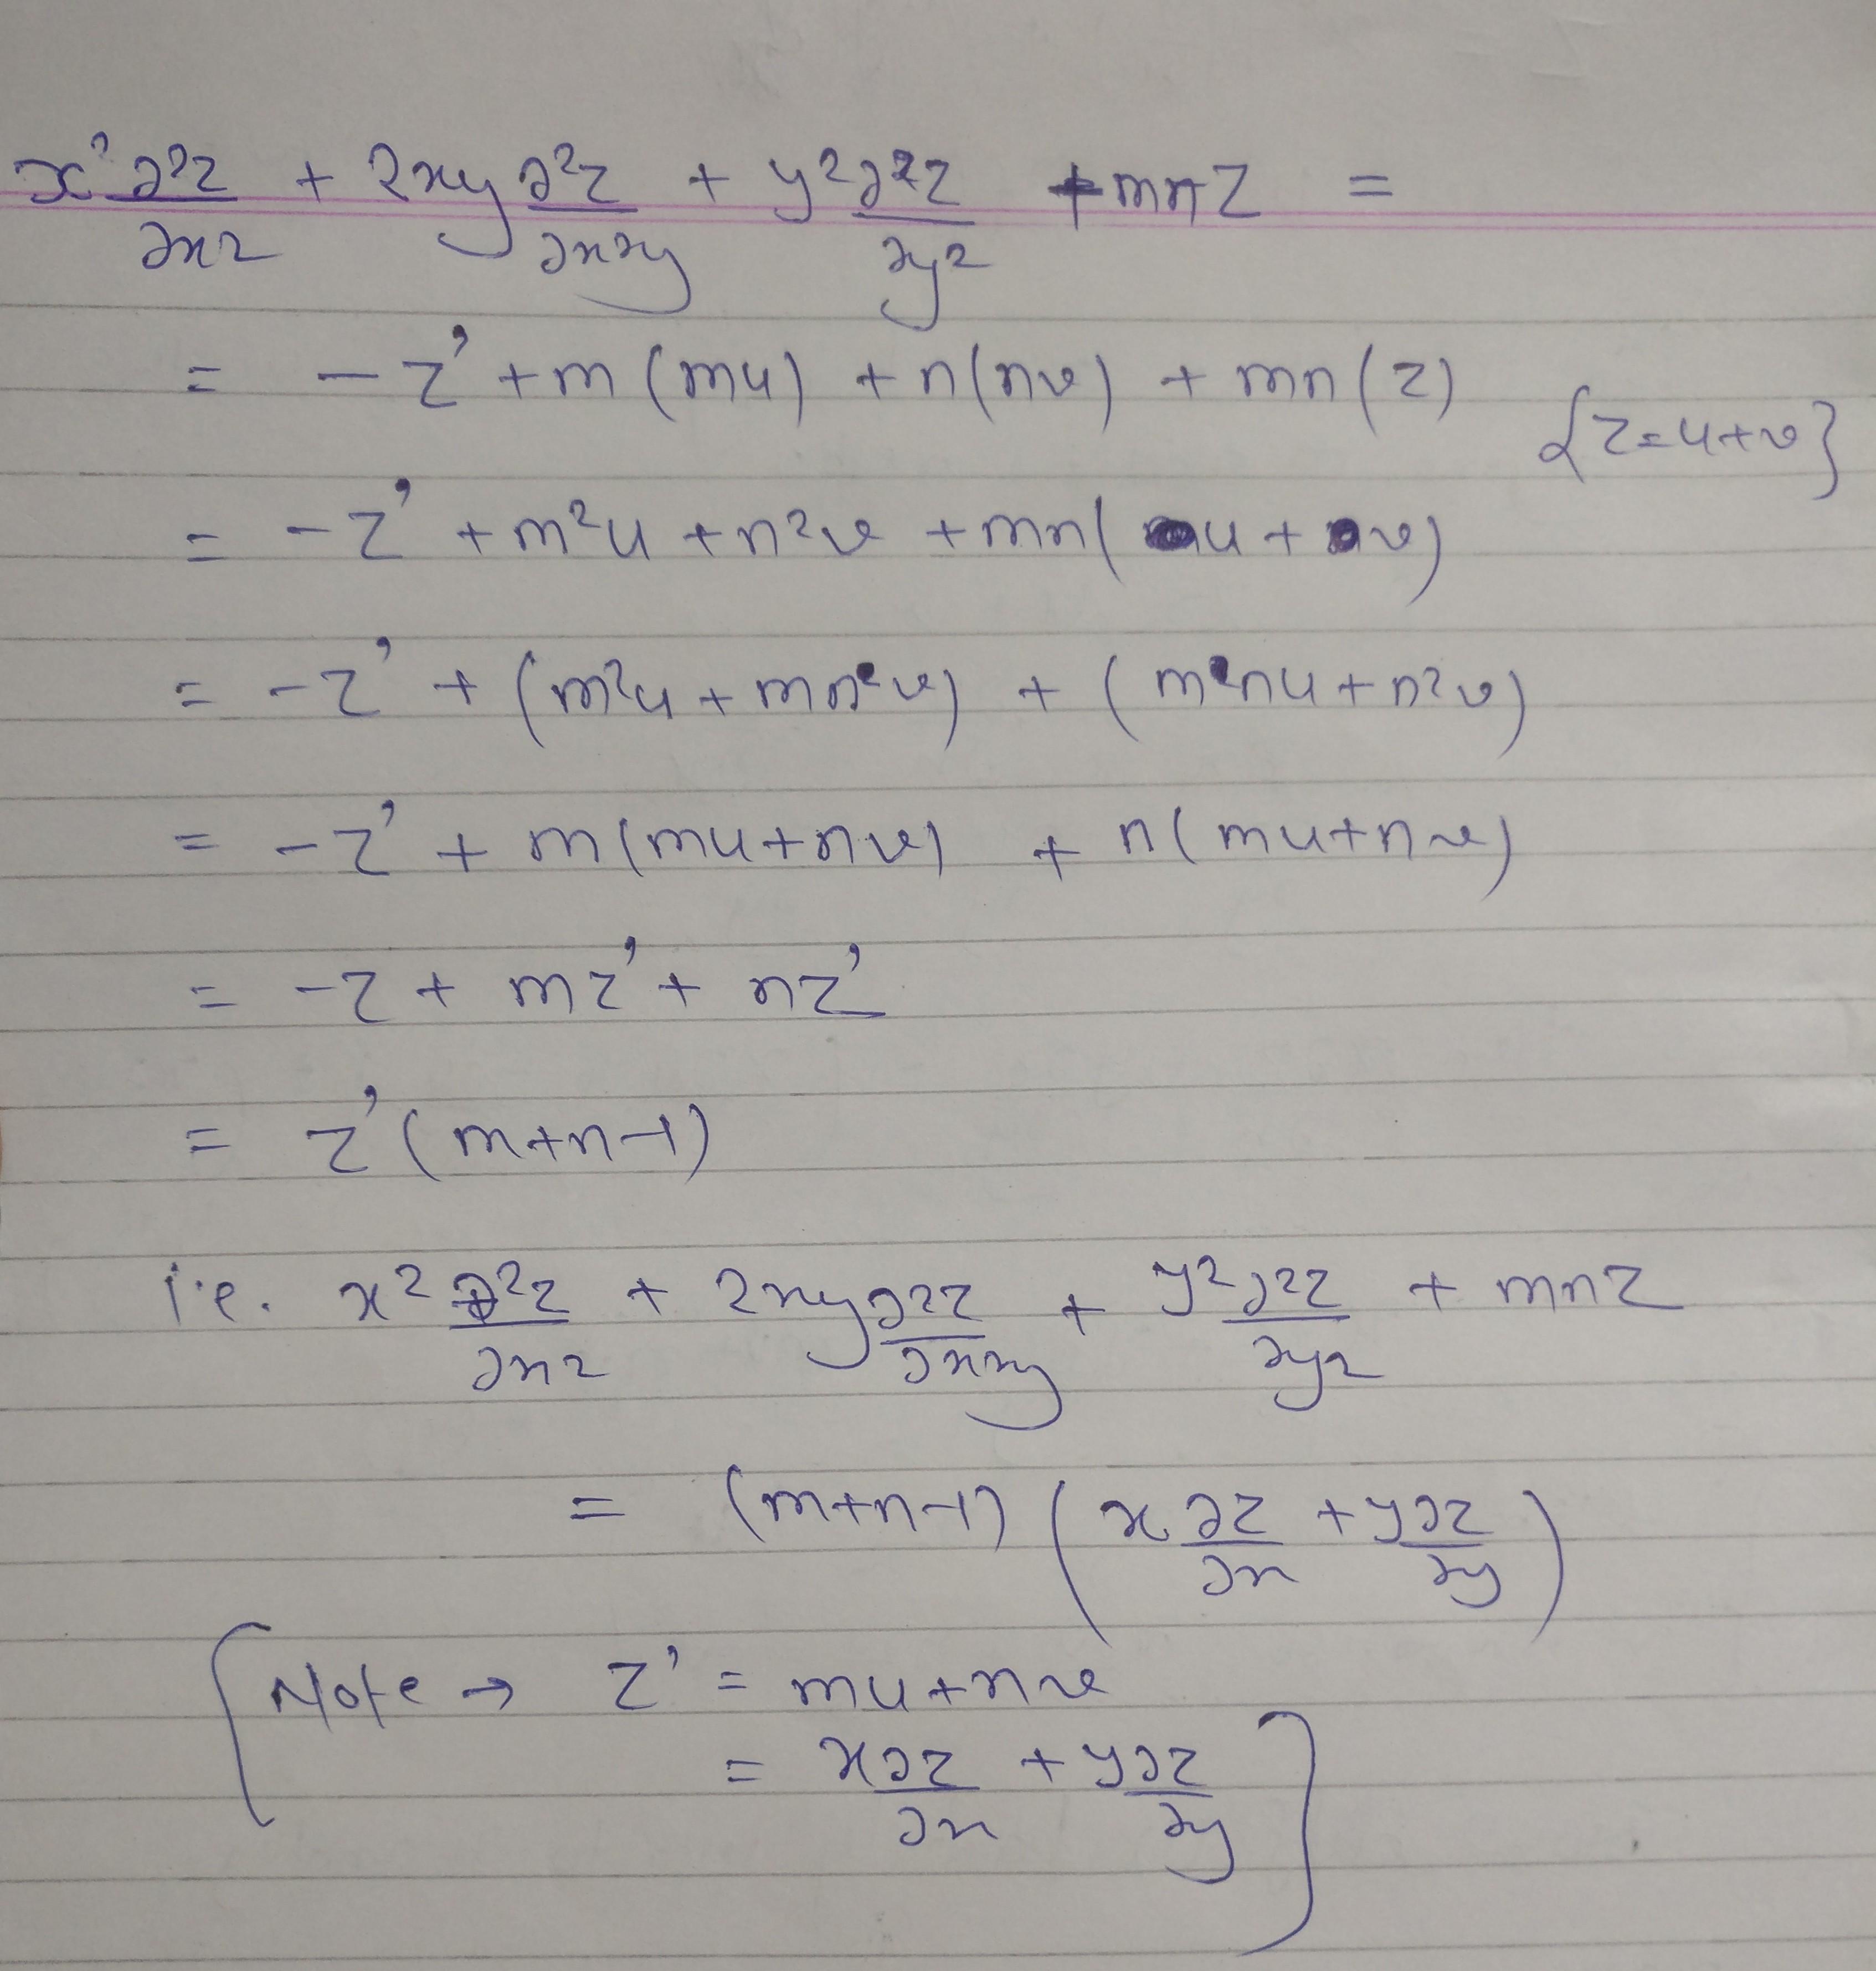 x² ∂²z/∂x² + 2xy ∂²z/∂x∂y + y² ∂²z/∂y² + mnz =
= -z' + m(mu) + n(nv) + mn(z) {z=u+v}
= -z' + m²u + n²v + mn(u+v)
= -z' + (m²u + mnv) + (mnu + n²v)
= -z' + m(mu+nv) + n(mu+nv)
= -z + mz' + nz'
= z'(m+n-1)
i.e. x² ∂²z/∂x² + 2xy ∂²z/∂x∂y + y² ∂²z/∂y² + mnz
= (m+n-1) (x ∂z/∂x + y ∂z/∂y)
{Note → z' = mu+nv
= x ∂z/∂x + y ∂z/∂y}